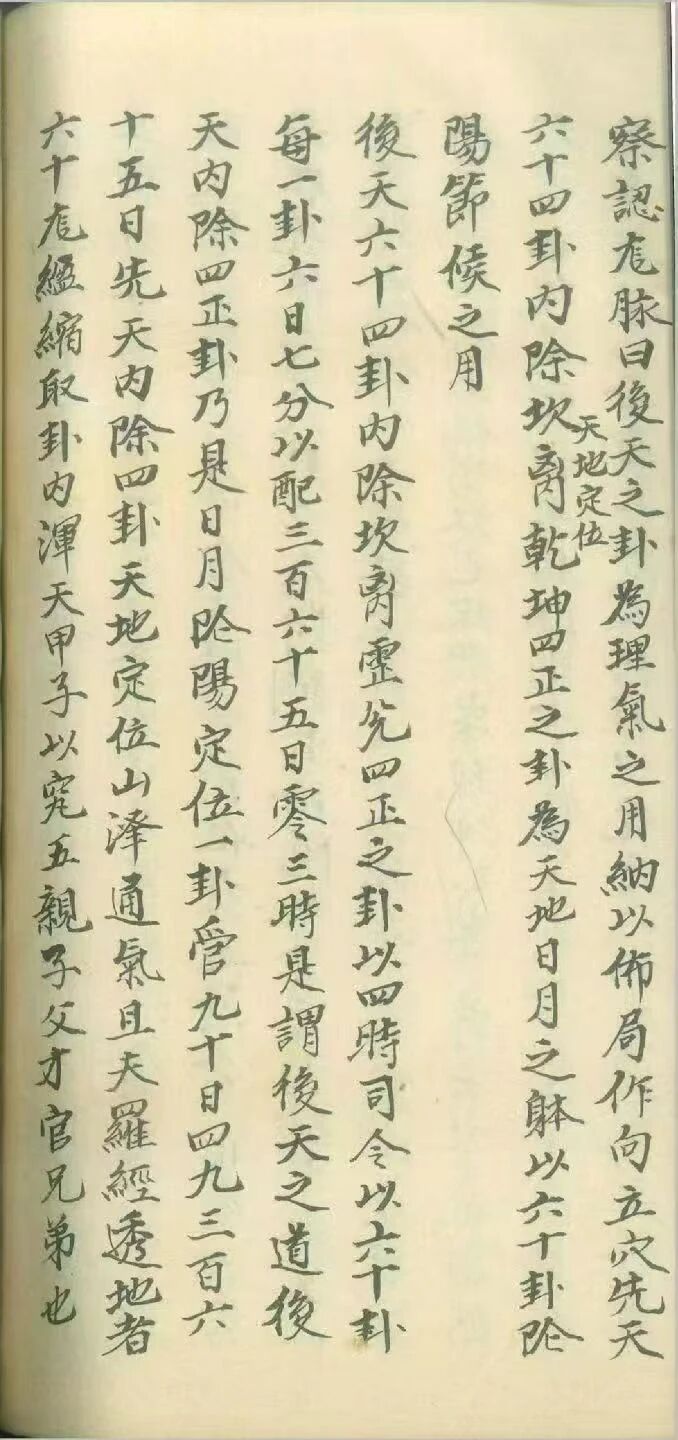 察認龙脉曰後天之卦為理氣之用納以佈局作向立穴先天
六十四卦内除坎离乾坤四正之卦為天地日月之躰以六十卦阴
天地定位
陽節候之用
後天六十四卦内除坎离震兑四正之卦以四時司令以六十卦
每一卦六日七分以配三百六十五日零三時是謂後天之道後
天内除四正卦乃是日月阴陽定位一卦管九十日四九三百六
十五日先天内除四卦天地定位山泽通氣且夫羅經透地者
六十龙縕縮取卦内渾天甲子以究五親子父才官兄弟也